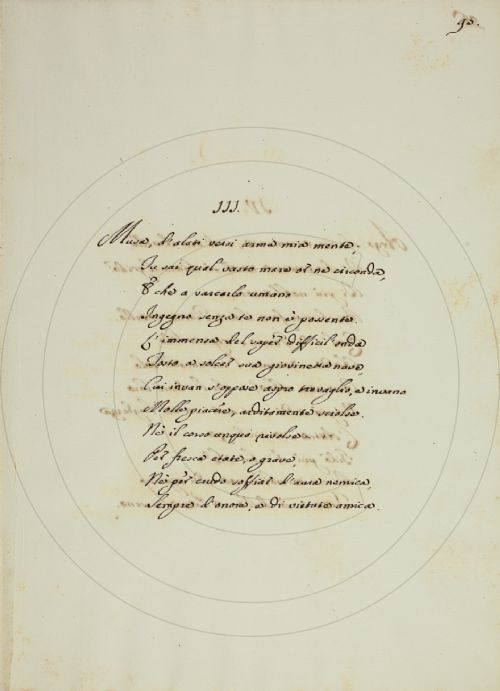 95.
III.
Musa, d'alati versi arma mia mente;
Tu sai qual vasto mare or ne circonda,
E che a varcarlo umano
Ingegno senza te non è possente.
L'immensa del saper difficil'onda
Tosto a solcar sua giovinetta nave,
Cui invan s'oppose aspro travaglio, e invano
Molle piacere, arditamente sciolse.
Nè il corso unquo rivolse
Per fresca etate, o grave
Nè per crudo soffiar d'aura nemica,
Sempre d'onore, e di virtute amica.